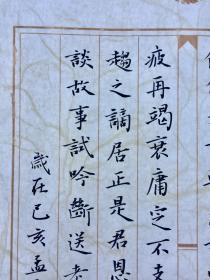 疲再竭衰庸定不支
趨之謫居正是君恩
談故事試吟斷送老
歲在己亥孟